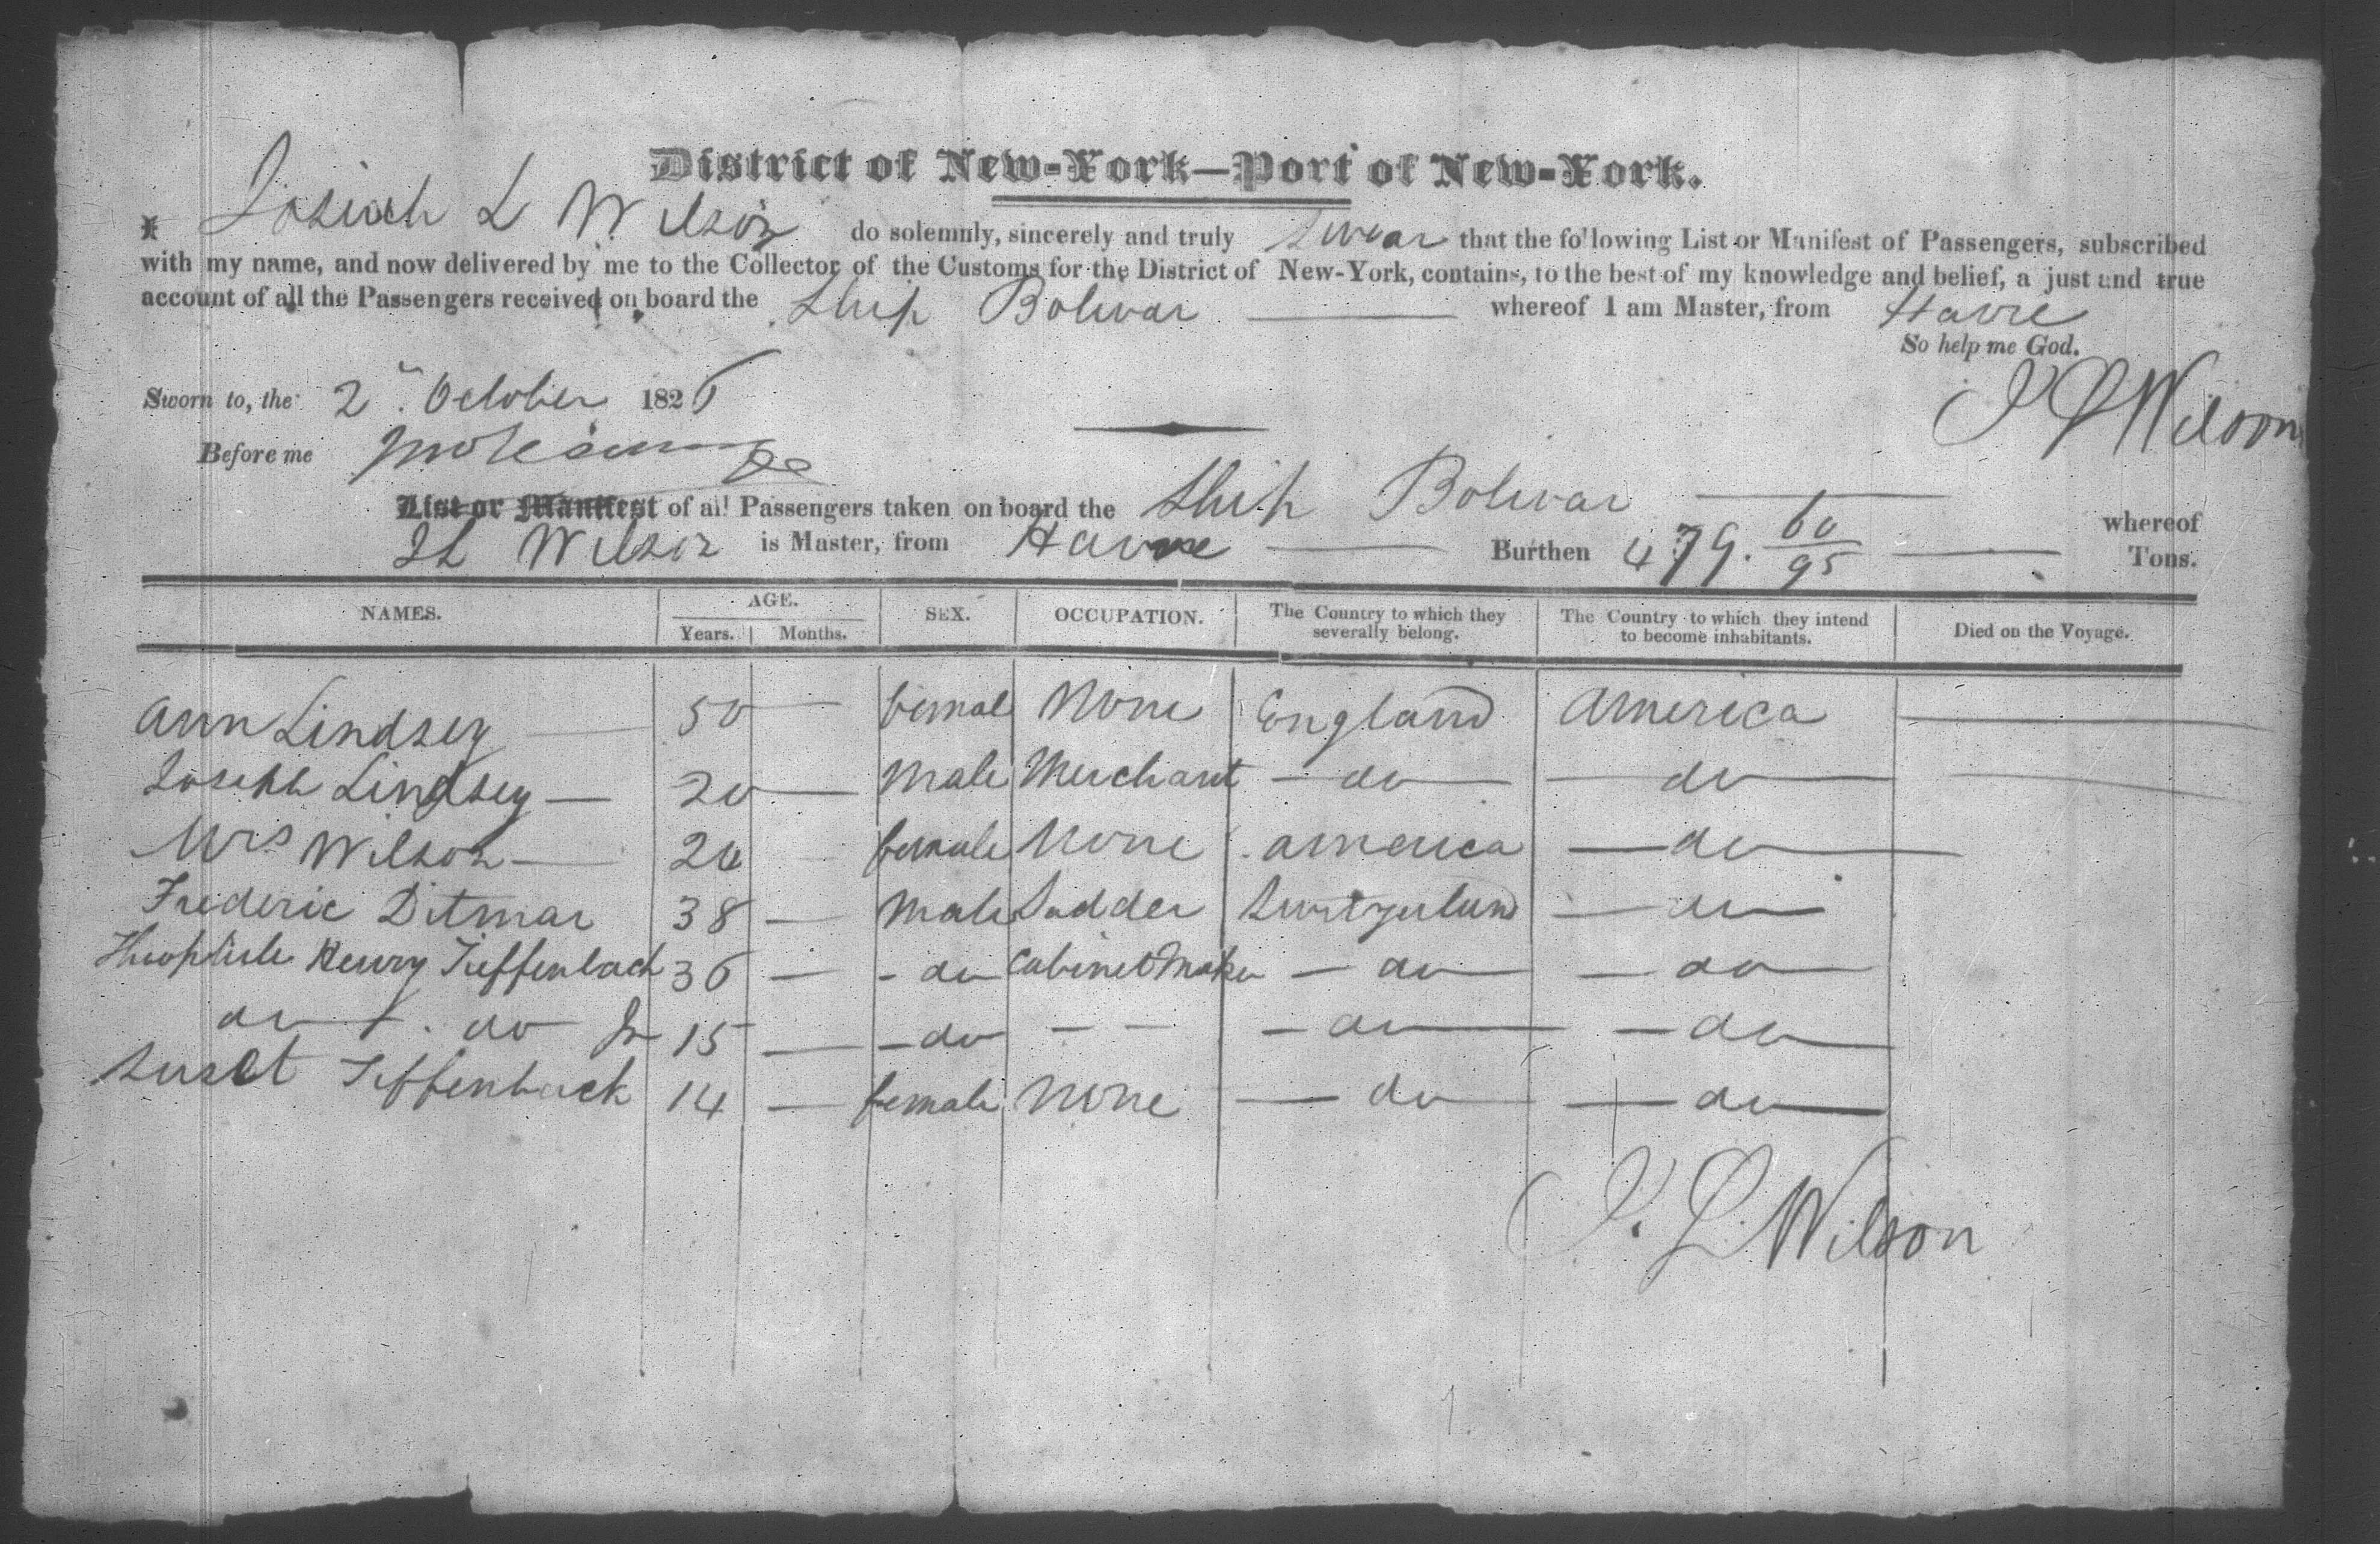 District of New-York—Port of New-York.
I Josiah L Wilson do solemnly, sincerely and truly swear that the following List or Manifest of Passengers, subscribed
with my name, and now delivered by me to the Collector of the Customs for the District of New-York, contains, to the best of my knowledge and belief, a just and true
account of all the Passengers received on board the Ship Bolivar — whereof I am Master, from Havre
So help me God.
Sworn to, the 2 October 1826
J L Wilson
Before me
List or Manifest of all Passengers taken on board the Ship Bolivar — whereof
JL Wilson is Master, from Havre — Burthen 479. 60/95 — Tons.
NAMES. AGE. SEX. OCCUPATION. The Country to which they severally belong. The Country to which they intend to become inhabitants. Died on the Voyage.
Years. Months.
Ann Lindsey — 50 — femal None England America —
Joseph Lindsey — 20 — Male Merchant — do — — do — —
Mrs Wilson — 20 female None america — do —
Frederic Ditmar 38 — Male Sadder Switzeland — do —
Theophile Henry Tieffenbach 36 — - do Cabinet Maker — do — — do —
do . do Jr 15 — - do - - - do — - do —
Suset Tieffenback 14 — female None — do — — do —
J. L. Wilson